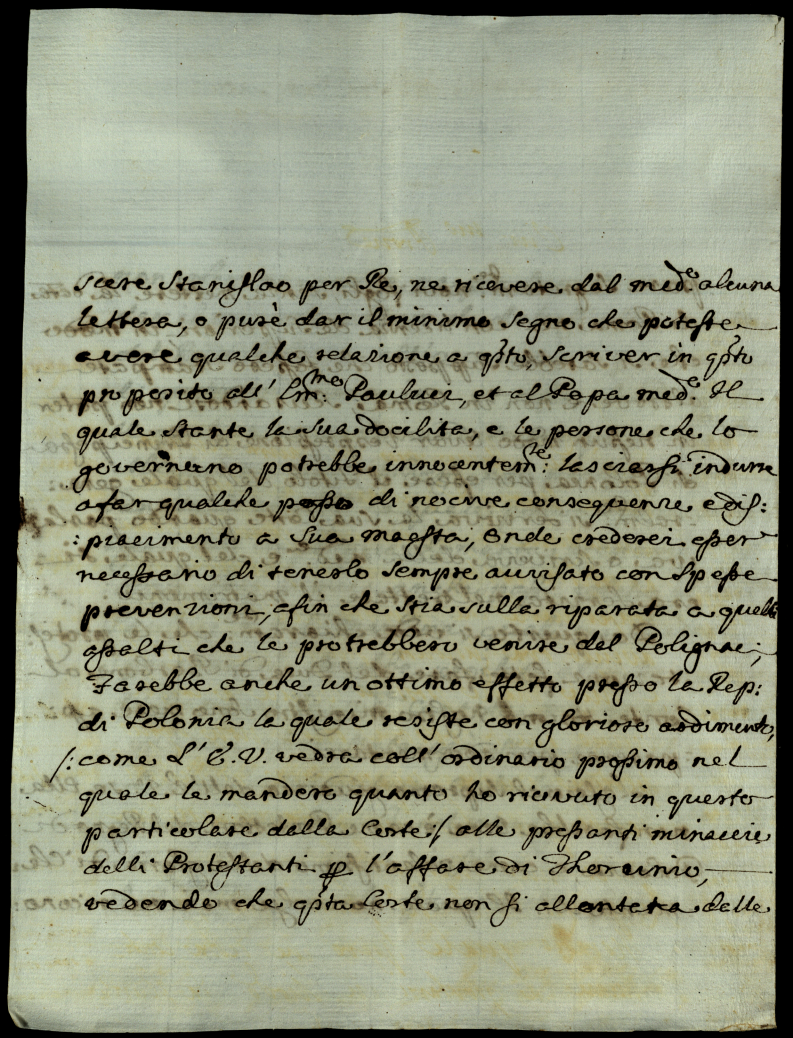 scere Stanislao per Re, ne ricevere dal med:o alcuna
lettera, o purè dar il minimo segno che potesse
avere qualche relazione a q̃sto, scriver in q̃sto
proposito all' Em:mo Pauluzi, et al Papa med:o. Il
quale stante la sua docilita, e le persone che lo
governano potrebbe innocentem:te lasciarsi indurre
a far qualche passo di nocive conseguenze e dis:
:piacimento a Sua Maesta, onde crederei esser
necessario di tenerlo sempre avvisato con spesse
prevenzioni, afin che stia sulla riparata a quelli
assalti che le protrebbero venire dal Polignac;
Farebbe anche un ottimo effetto presso la Rep:
di Polonia la quale resiste con glorioso ardimento,
/: come L' E. V. vedra coll' ordinario prossimo nel
quale le manderò quanto ho ricevuto in questo
particolare dalla Corte :/ alle pressanti minaccie
delli Protestanti p l'affare di Thorunio,
vedendo che q̃sta Corte non si allontata dalle